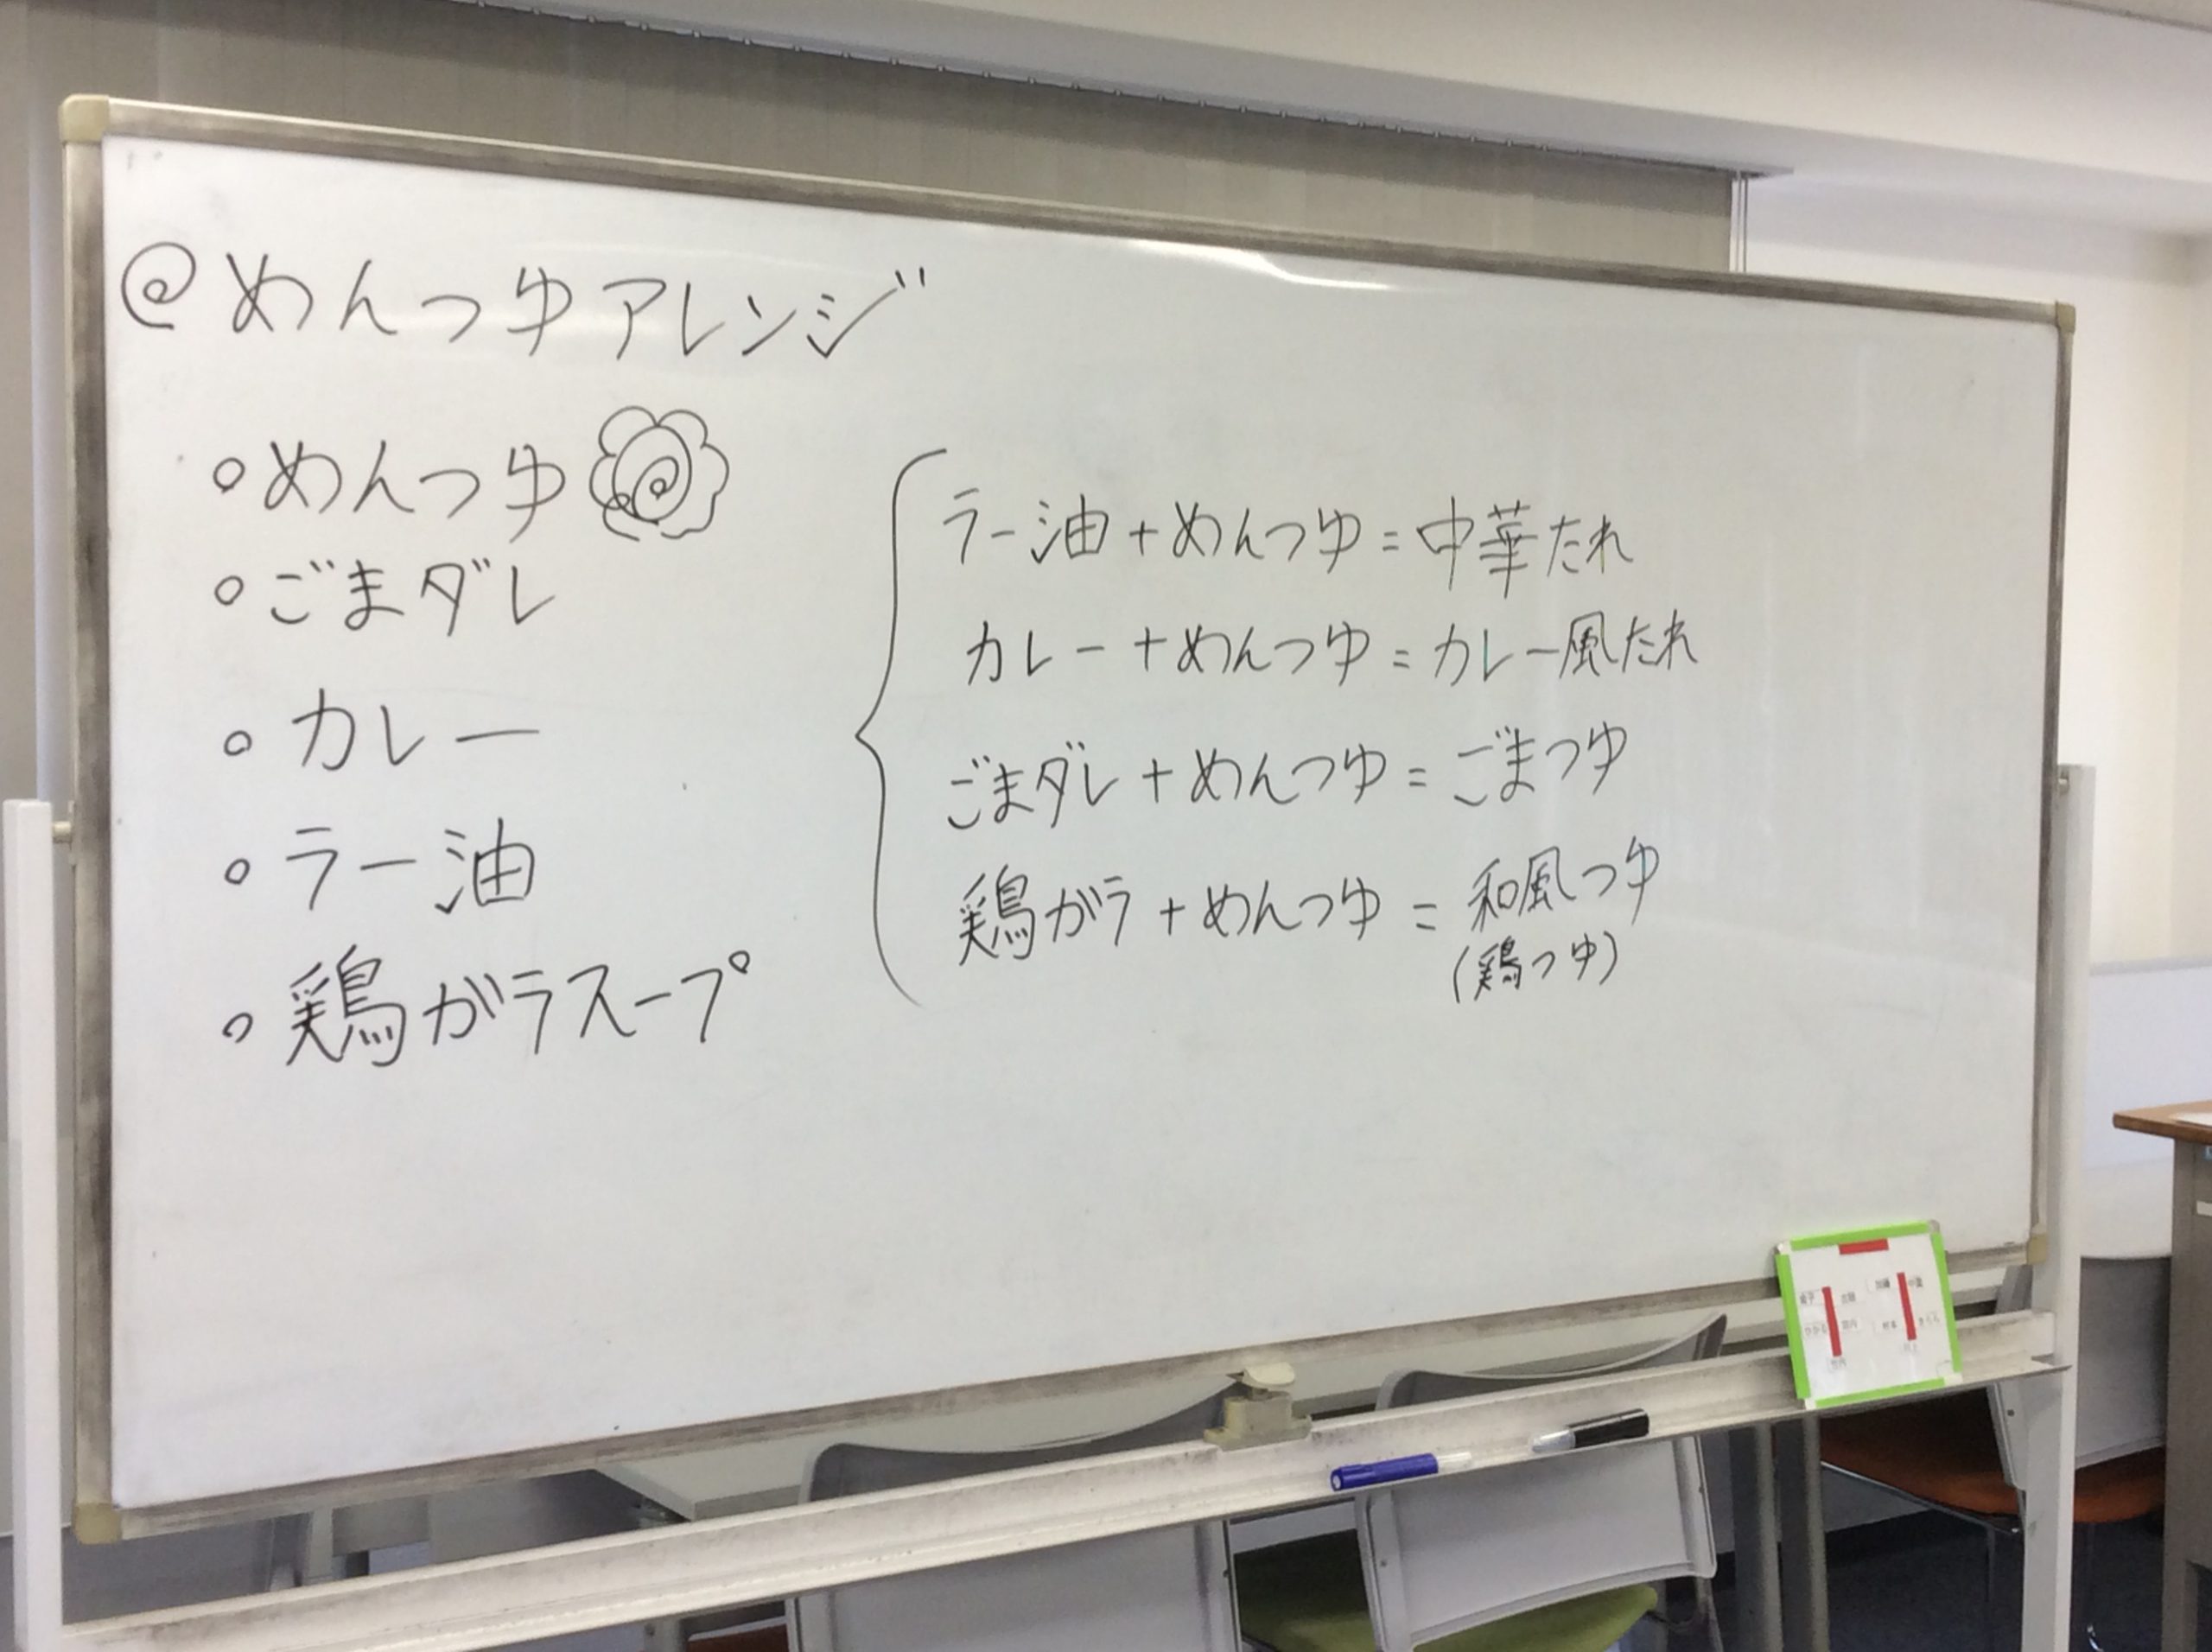 @めんつゆアレンジ
○めんつゆ
○ごまダレ
○カレー
○ラー油
○鶏がラスープ
ラー油+めんつゆ=中華たれ
カレー+めんつゆ=カレー風たれ
ごまダレ+めんつゆ=ごまつゆ
鶏がラ+めんつゆ=和風つゆ
(鶏つゆ)